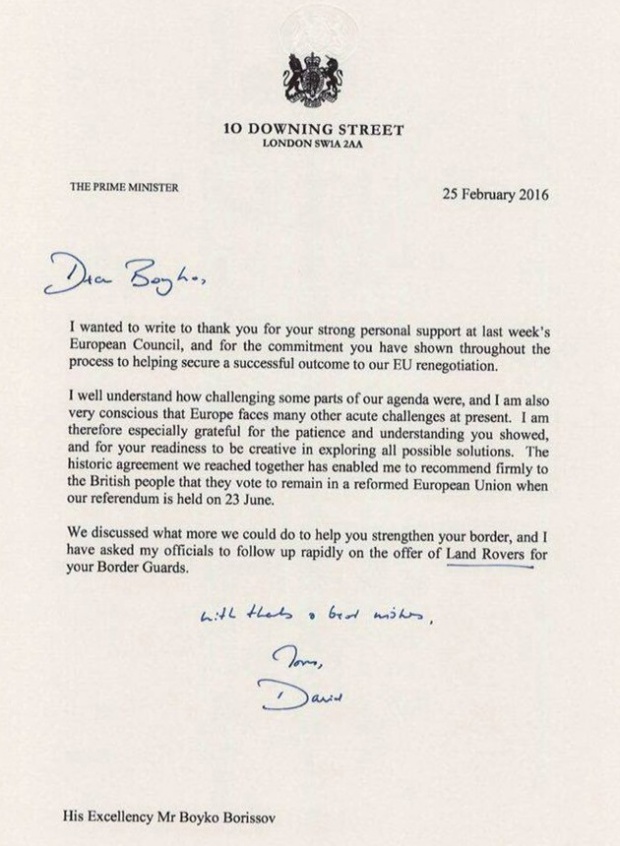 10 DOWNING STREET
LONDON SW1A 2AA
THE PRIME MINISTER
25 February 2016
Dear Boyko,
I wanted to write to thank you for your strong personal support at last week's
European Council, and for the commitment you have shown throughout the
process to helping secure a successful outcome to our EU renegotiation.
I well understand how challenging some parts of our agenda were, and I am also
very conscious that Europe faces many other acute challenges at present. I am
therefore especially grateful for the patience and understanding you showed,
and for your readiness to be creative in exploring all possible solutions. The
historic agreement we reached together has enabled me to recommend firmly to
the British people that they vote to remain in a reformed European Union when
our referendum is held on 23 June.
We discussed what more we could do to help you strengthen your border, and I
have asked my officials to follow up rapidly on the offer of Land Rovers for
your Border Guards.
with thanks & best wishes,
Yours,
David
His Excellency Mr Boyko Borissov